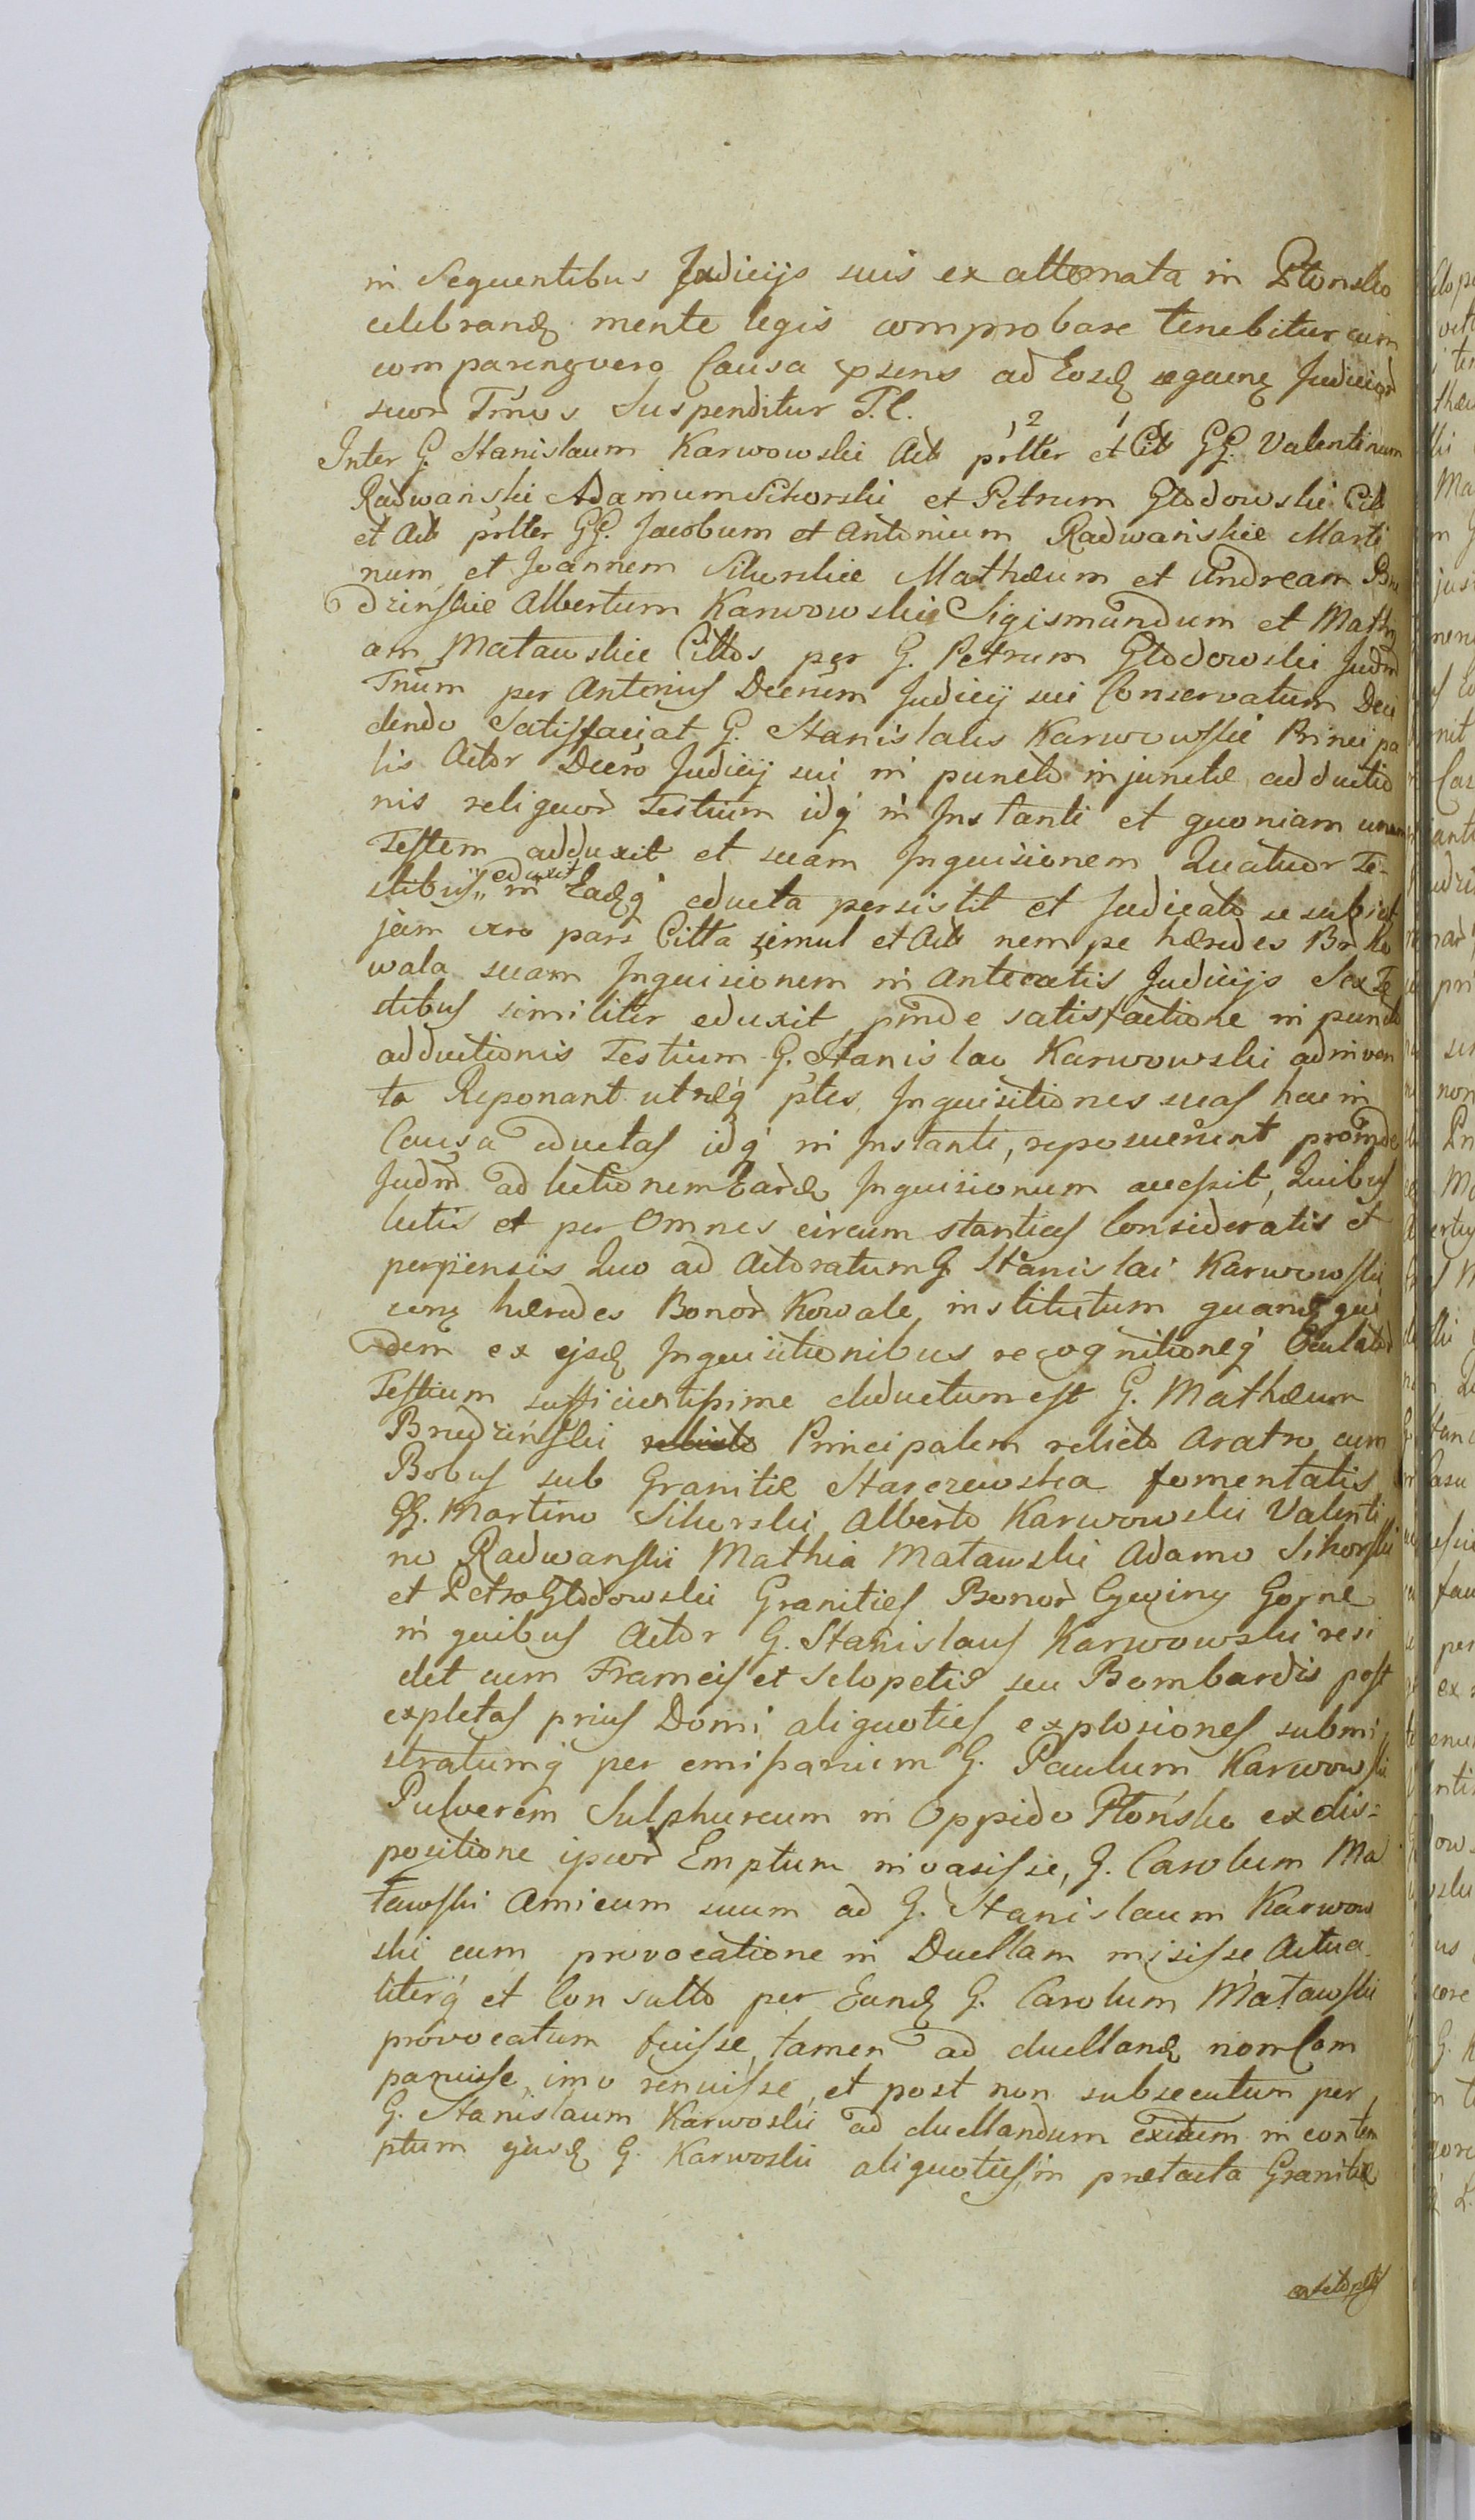 in Sequentibus Judicijs suis ex alternata in Płonsko
celebrand mente legis comprobare tenebitur cum
comparengvero Causa psens ad Eosd seguen Judicior
suor Trnos Suspenditur T. C.
Inter G. Stanislaum Karwowski Act prlter et Cit GG. Valentinum
Radwański Adamum Sikorski et Petrum Głodowski Cit
et Act prlter GG. Jacobum et Antonium Radwańskie Marti
num et Joannem Sikorskie Mathæum et Andream Bru
dzinskie Albertum Karwowski Sigismundum et Mathi
am Matawskie Cittos per G. Petrum Głodowski Judm
Trnum per Anterius Decrum Judicij sui Conservatum Deci
dendo Satisfaciat G. Stanislaus Karwowski Principa
lis Actor Decro Judicij sui in puncto injunctæ adductio
nis reliquor Testium idq in Instanti et quoniam unum
Testem adduxit et suam Inquisionem Quatuor Te-
stibus eduxit in Eadq educta persistit et Judicato se subiet
jam vro pars Citta simul et Act nempe hæredes Br Ko
wala suam Inquisionem in Anteratis Judicijs Sex Te
stibus similiter eduxit, pinde satisfactione in puncto
adductionis Testium G. Stanislao Karwowski adinven
ta Reponant utræq ptes Inquisitiones suas hac in
Causa eductas idq in Instanti, reposuerunt proinde
Judm ad lectionem Eard Inquisionum accessit, Quibus
lectis et per Omnes circumstantias Consideratis et
perpensis Quo ad Actoratum G. Stanislai Karwowski
con hæredes Bonor Kowale institutum quand qui
dem ex ejsd Inquisitionibus recognitioneq Oculator
Testium sufficientissime deductum est G. Mathæum
Brudzinski relicto Principalem relicto Aratro cum
Bobus sub Granitie Starczewska fomentatis
GG. Martino Sikorski Alberto Karwowski Valenti
no Radwanski Mathia Matawski Adamo Sikorski
et Petro Głodowski Granities Bonor Cywiny Gorne
in quibus Actor G. Stanislaus Karwowski resi
det cum Frameis et Sclopetis seu Bombardis post
expletas prius Domi aliquoties explosiones submi
stratumq per emissarium G. Paulum Karwowski
Pulverem Sulphureum in Oppido Płońsko ex dis=
positione ipsor Emptum invasisse, G. Carolum Ma
tawski Amicum suum ad G. Stanislaum Karwow
ski cum provocatione in Duellam misisse Actua
literq et Consulto per Eund G. Carolum Matawski
provocatum fuisse, tamen ad duelland non Com
paruisse, imo renuisse, et post non subsecutum per
G. Stanislaum Karwoski ad duellandum exitum in contem
ptum ejusd G. Karwoski aliquoties in prætacta Granitie